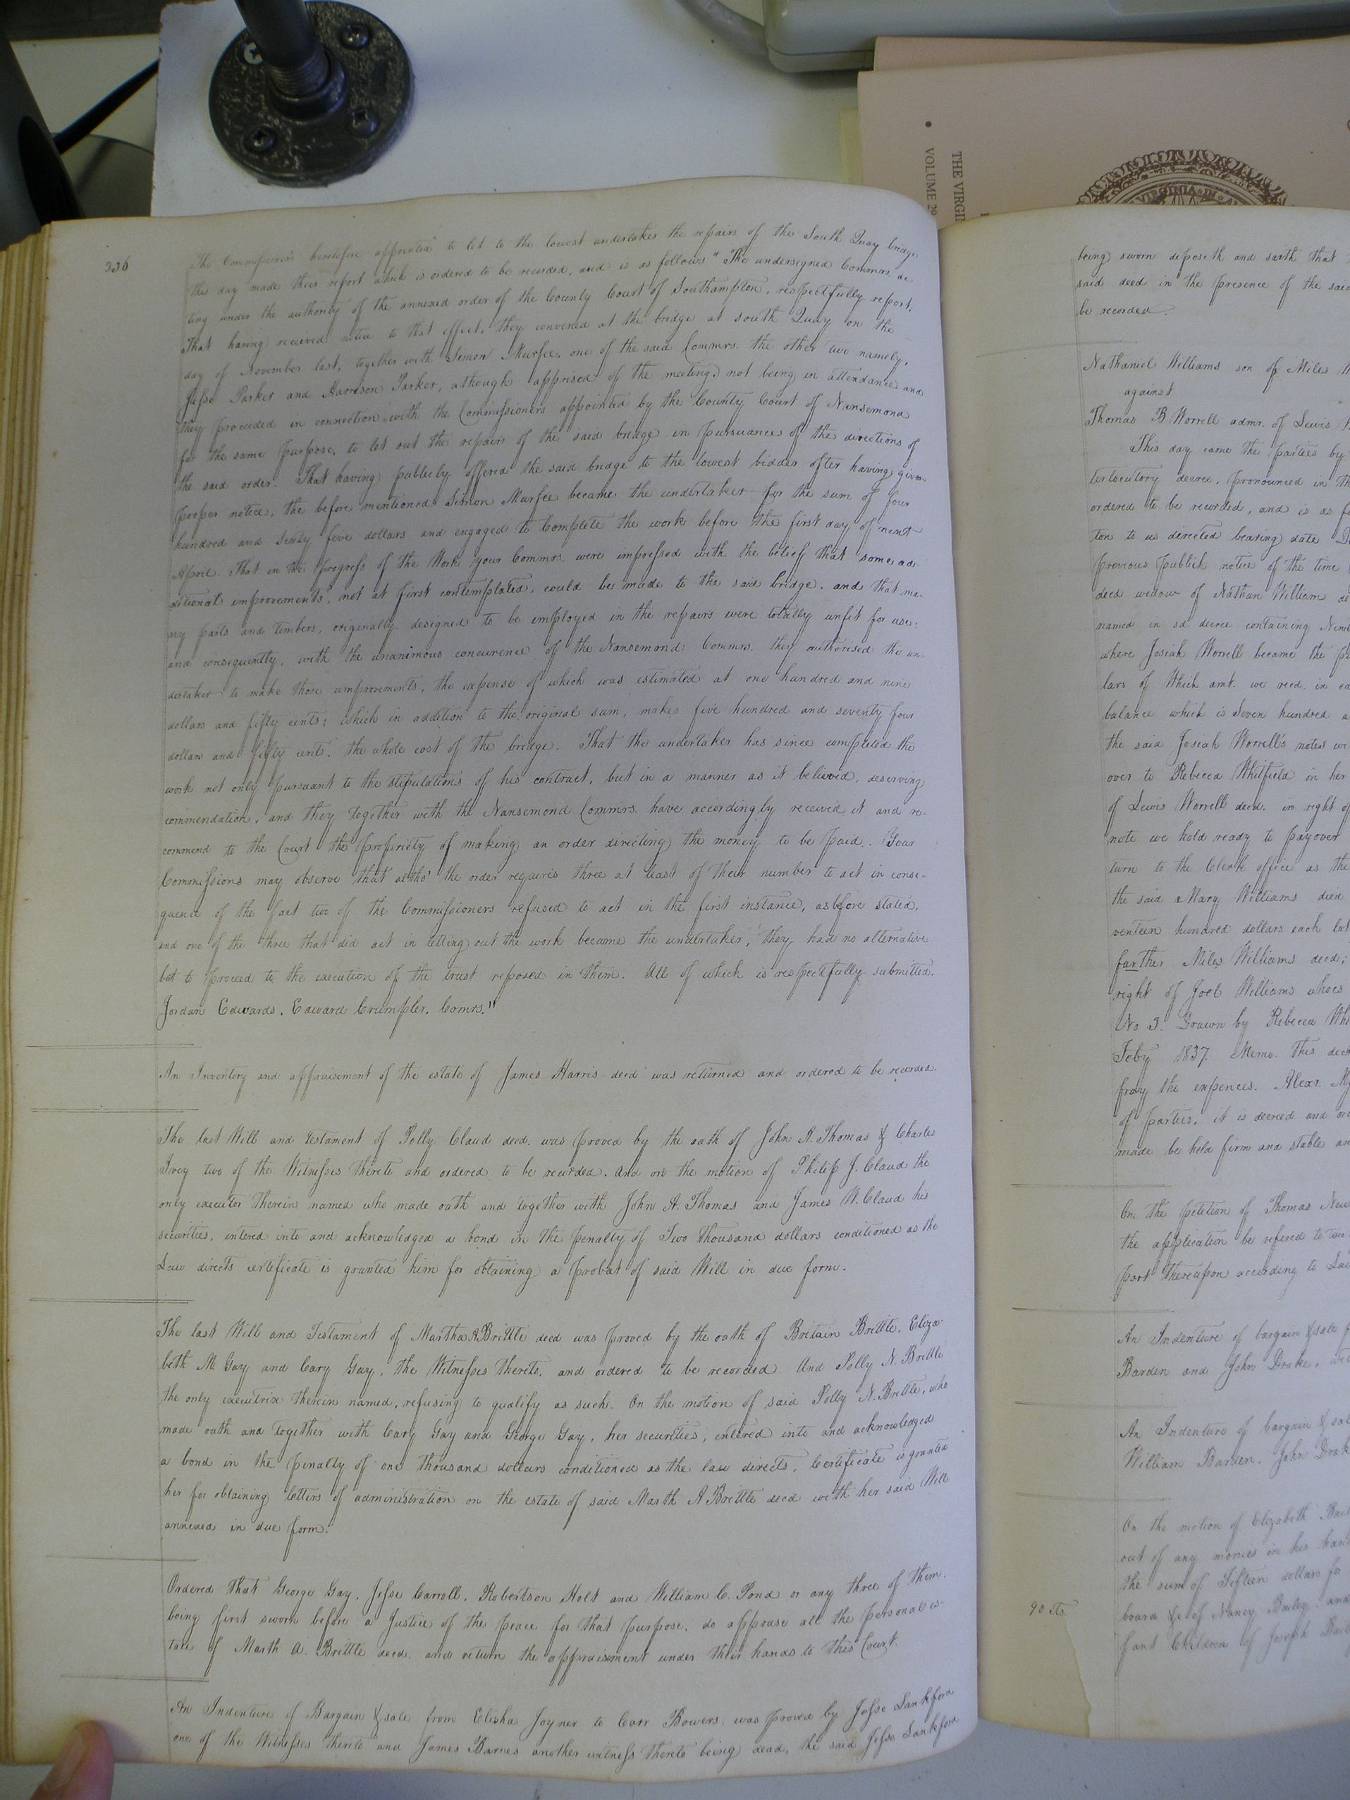 THE VIRGI
VOLUME 29
VIRGINIA
336
The Commissioners heretofore appointed to let to the lowest undertaker the repairs of the South Quay bridge
this day made their report which is ordered to be recorded, and is as follows "The undersigned Commrs. ac
ting under the authority of the annexed order of the County Court of Southampton, respectfully report,
That having received notice to that effect, they convened at the bridge at South Quay on the
day of November last, together with Simon Murfee, one of the said Commrs. the other two namely,
Jesse Parker and Harrison Parker, although apprised of the meeting, not being in attendance and
they proceeded in connection with the Commissioners appointed by the County Court of Nansemond
for the same purpose, to let out the repairs of the said bridge in pursuance of the directions of
the said order. That having publicly offered the said bridge to the lowest bidder after having given
proper notice, the before mentioned Simon Murfee became the undertaker for the sum of four
hundred and sixty five dollars and engaged to complete the work before the first day of next
April. That in the progress of the Work your Commrs. were impressed with the belief that some ad-
ditional improvements, not at first contemplated, could be made to the said bridge, and that ma-
ny parts and timbers, originally designed to be employed in the repairs were totally unfit for use:
and consequently, with the unanimous concurence of the Nansemond Commrs. they authorised the un-
dertaker to make those improvements, the expense of which was estimated at one hundred and nine
dollars and fifty cents; which in addition to the original sum, makes five hundred and seventy four
dollars and fifty cents, the whole cost of the bridge. That the undertaker has since completed the
work not only pursuant to the stipulations of his contract, but in a manner as it believed, deserving
commendation, and they together with the Nansemond Commrs. have accordingly received it and re-
commend to the Court the propriety of making an order directing the money to be paid. Your
Commissions may observe that altho' the order requires three at least of their number to act in conse-
quence of the fact two of the Commissioners refused to act in the first instance, as before stated,
and one of the three that did act in letting out the work became the undertaker, they had no alternative
but to proceed to the execution of the trust reposed in them. All of which is respectfully submitted.
Jordan Edwards, Edward Crumpler, Comrs."
An Inventory and appraisement of the estate of James Harris decd was returned and ordered to be recorded.
The last Will and Testament of Polly Claud decd. was proved by the oath of John A. Thomas & Charles
Ivey two of the Witnesses thereto and ordered to be recorded. And on the motion of Philip J. Claud the
only executor therein named who made oath and together with John A. Thomas and James W. Claud his
securities, entered into and acknowledged a bond in the penalty of Two thousand dollars conditioned as the
Law directs certificate is granted him for obtaining a probat of said Will in due form.
The last Will and Testament of Martha A Brittle decd was proved by the oath of Britain Brittle, Eliza-
beth M Gay and Cary Gay, the Witnesses thereto, and ordered to be recorded. And Polly N. Brittle
the only executrix therein named, refusing to qualify as such. On the motion of said Polly N. Brittle, who
made oath and together with Cary Gay and George Gay, her securities, entered into and acknowledged
a bond in the penalty of one thousand dollars conditioned as the law directs. Certificate is granted
her for obtaining letters of administration on the estate of said Marth A Brittle decd with her said Will
annexed in due form.
Ordered that George Gay, Jesse Carroll, Robertson Holt and William C. Pond or any three of them,
being first sworn before a Justice of the peace for that purpose, do appraise all the personal es-
tate of Marth A. Brittle decd. and return the appraisement under their hands to this Court.
An Indenture of Bargain & sale from Elisha Joyner to Carr Bowers was proved by Jesse Lankford
one of the Witnesses thereto and James Barnes another witness thereto being dead, the said Jesse Lankford
being sworn deposeth and saith that
said deed in the presence of the said
be recorded.
Nathaniel Williams son of Miles
against
Thomas B. Worrell admr. of Lewis
This day came the parties by
terlocutory decree, pronounced in
ordered to be recorded, and is as
ton to us directed bearing date
previous publick notice of the time
decd widow of Nathan William
named in sd decree containing
where Josiah Worrell became the
lars of Which amt. we recd. in
balance which is Seven hundred
the said Josiah Worrell's notes
over to Rebecca Whitfield in her
of Lewis Worrell decd. in right of
note we hold ready to pay over
turn to the Clerk office as the
the said Mary Williams died
venteen hundred dollars each
farther Miles Williams decd;
right of Joel Williams whoes
No 3. Drawn by Rebecca
Feby 1837. Memo. This
fray the expences. Alexr.
of parties, it is decreed and
made be held firm and stable
On the petition of Thomas
the application be refered to
port thereupon according to
An Indenture of bargain & sale
Barden and John Drake,
An Indenture of bargain &
William Barden, John
On the motion of Elizabeth
out of any monies in his
the sum of Fifteen dollars
board & of Nancy Bailey
fant Children of Joseph